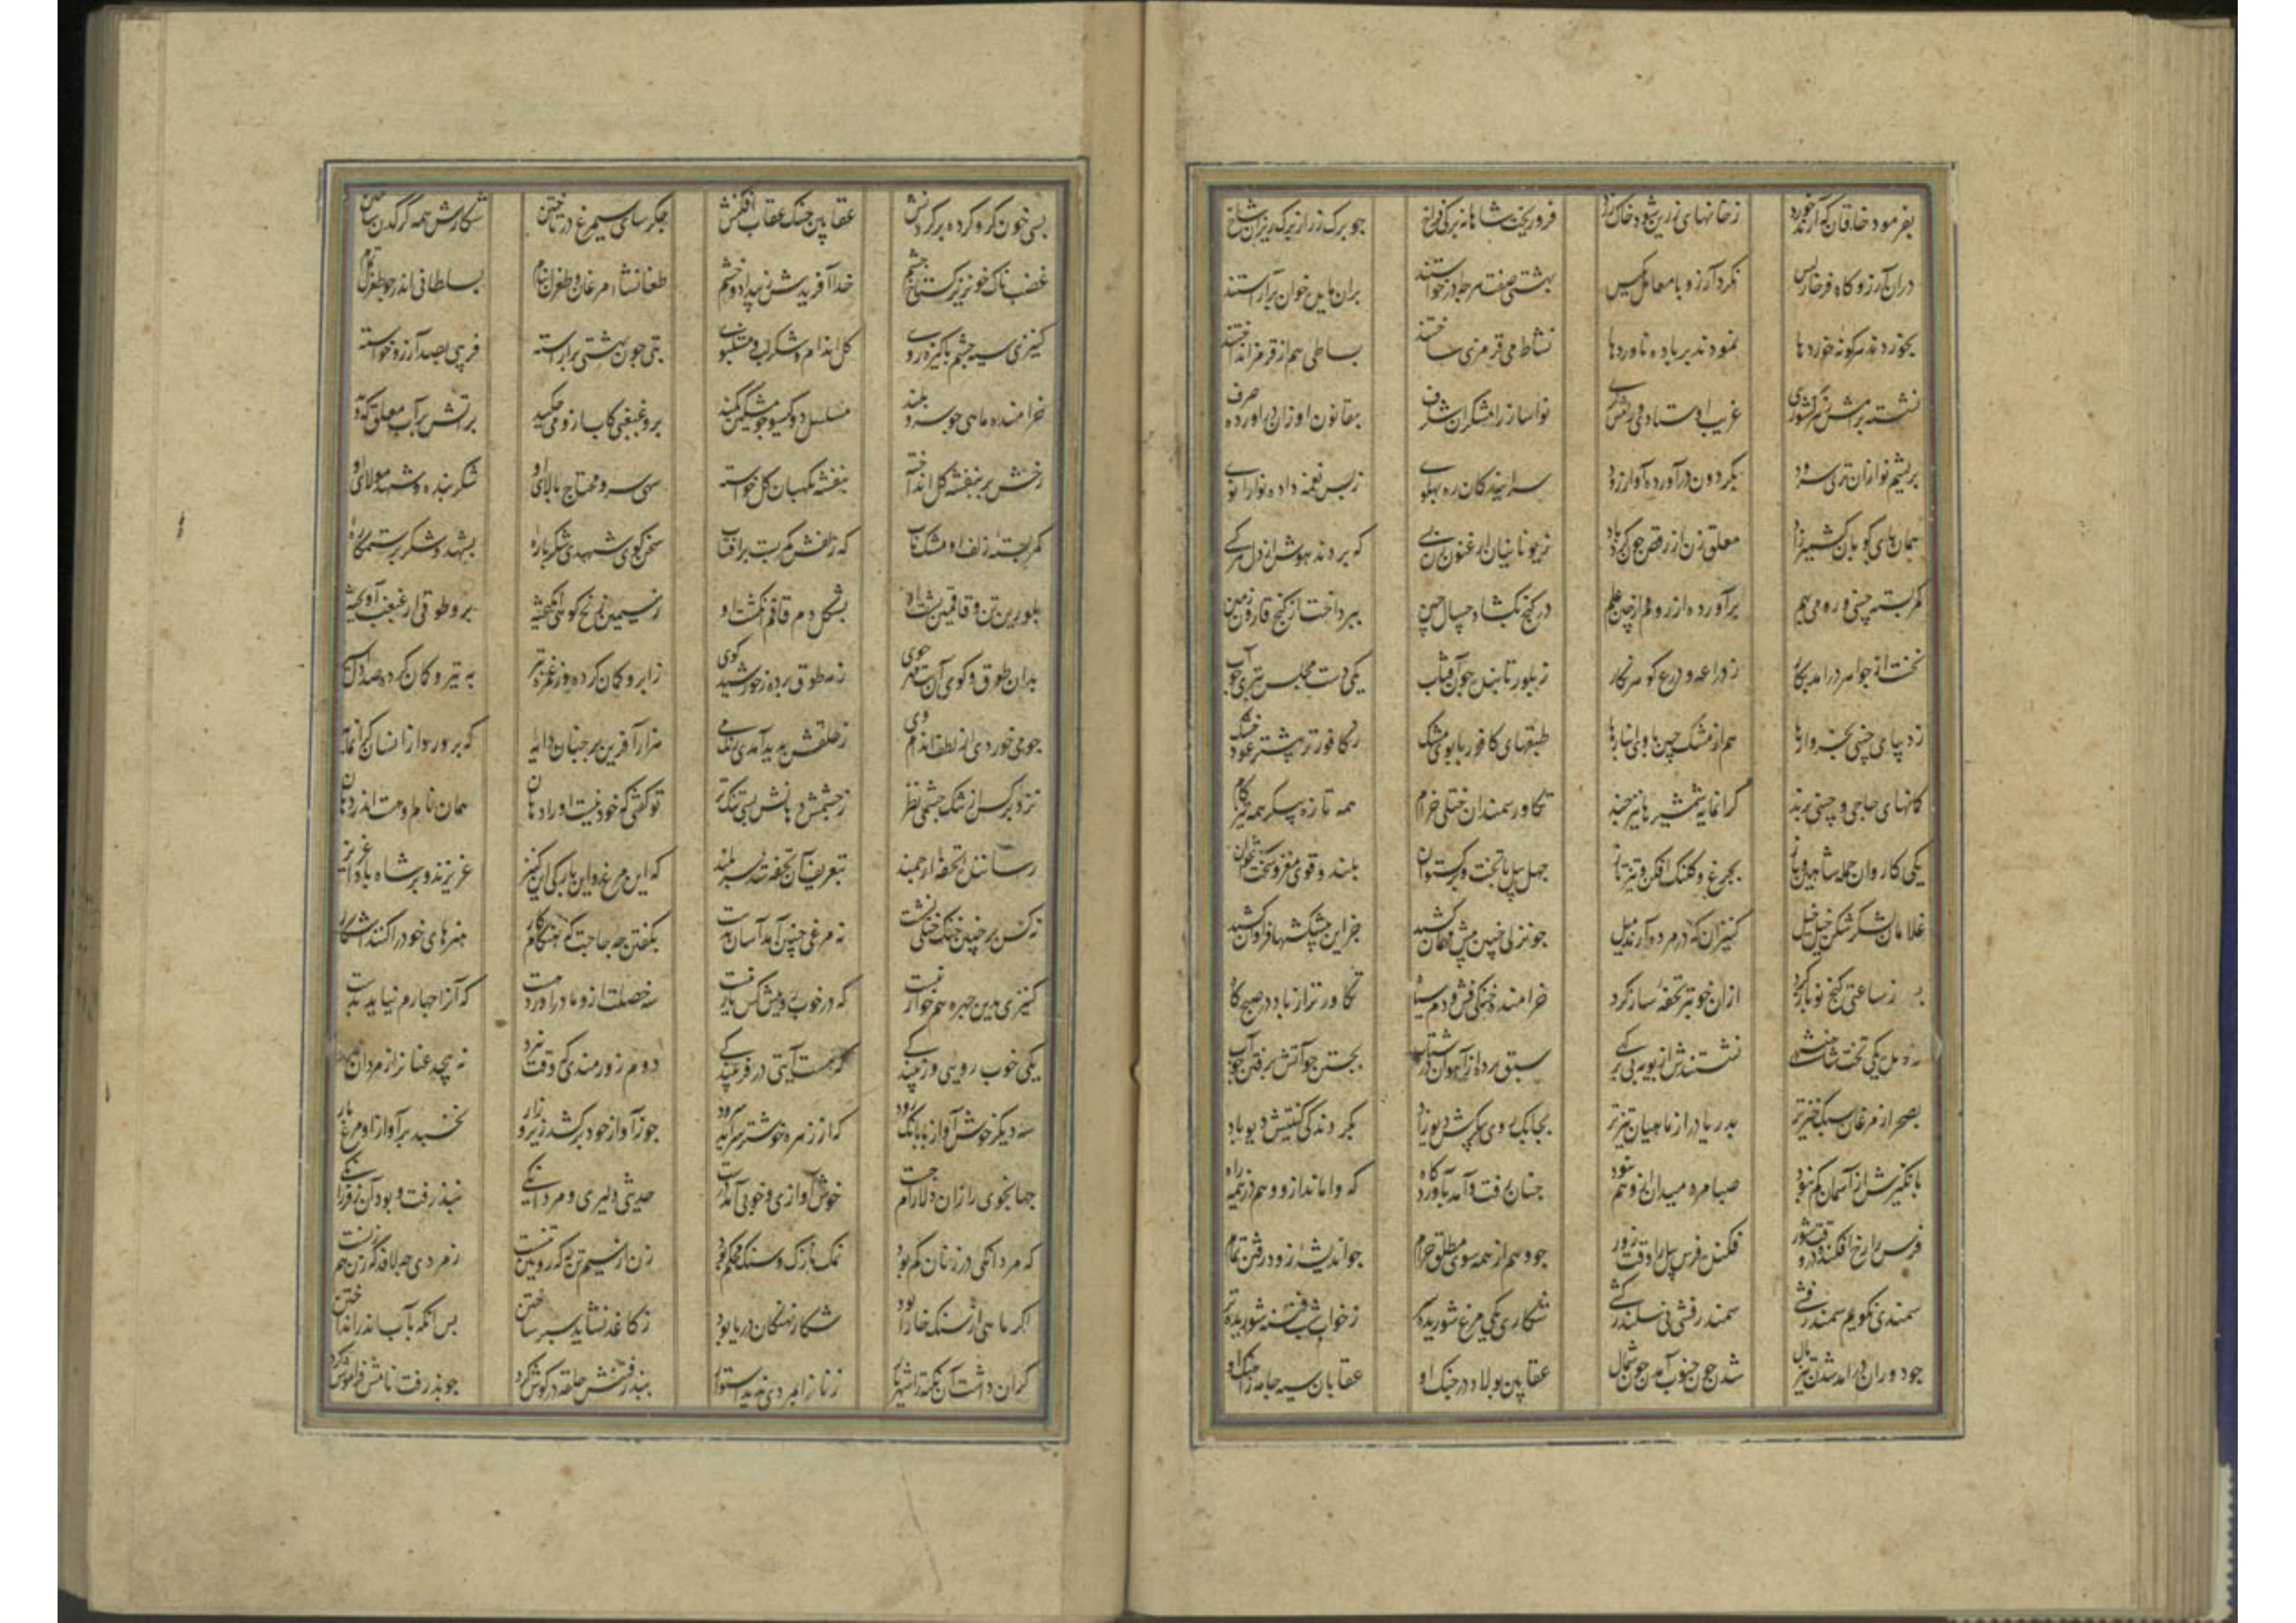 بفرمود خاقان که از خورد زخانهای زرین شود خاک زرد فروریخت شاهانه برکی فراخ جو برک رز از برک ریزان شاخ
دران آرزو گاه فرخارس نکرد آرزو با معامل مکیس بهشتی صفت هرجه درخواستند بران مایده خوان برآراستند
بخوردند هرکونه خوردها نمودند برباده ناوردها نشاط می قرمزی ساختند بساطی هم از قرمز انداختند
نشسته برامش زهر کشوری غریب اوستادی و رامشکری نواساز رامشکران شکرف بقانون اوزان براورده حرف
بریشم نوازان سغدی سرود بکردون برآورده آواز رود سرایندکان ره پهلوی زبس نغمه داده نوا را نوی
همان پای کوبان کشمیرزاد معلق زن از رقص جون کردباد زیونانیان ارغنون زن بسی که بردند هوش از دل هر کسی
کمر بسته چینی و رومی بهم برآورده از روم و از چین علم در کنج بکشاد جیپال چین بپرداخت از کنج قارون زمین
نخست از جواهر درآمد بکار ز دراعه و درع کوهرنکار زبلور تابنده جون آفتاب یکی دست مجلس بتری جو آب
ز دیبای چینی بخروارها هم از مشک چین با وی انبارها طبقهای کافور با بوی مشک ز کافورتر بیشتر عود خشک
کمانهای چاچی و چینی پرند کرانمایه شمشیرها نیز چند تکاور سمندان ختلی خرام همه تازه پیکر همه تیزکام
یکی کاروان جمله شاهین و باز بچرغ و کلنک افکن و تیزتاز چهل پیل با تخت و برکستوان بلند و قوی مغز و سخت استخوان
غلامان لشکرشکن خیل خیل کنیزان که در مرده آرند میل جو نزلی جنین پیش مهمان کشید جز این پیشکشها فراوان کشید
پس از ساعتی کنج نو باز کرد ازان خوبتر تحفه ساز کرد خرامنده خنکی فش و دم سیاه تکاورتر از باد در صبحگاه
یکی تخت نشستندش از پویه بی سبق برده از آهوان در شتاب بجستن جو آتش برفتن جو آب
بصحرا از مرغان سبک خیزتر بدریا در از ماهیان تیزتر بجابک روی پیکرش دیوزاد بکردندکی کنیتش دیوباد
بانکیزش از آسمان کم نبود صبا مرد میدان او هم نبود جنان رفت و آمد باوردگاه که واماند ازو وهم در نیمه راه
فرس را رخ افکنده در وقت شور فکنده فرس پیل را وقت زور جو وهم از همه سوی مطلق خرام جو اندیشه زود رفتن تمام
سمندی نکویم سمندر فشی سمندر فشی نی سکندرکشی شکاری یکی مرغ شوریده سر زخواب شب فتنه شوریده تر
جو دوران درآمد شدن تیزبال شدن جون جنوب آمدن جون شمال عقابین پولاد در چنک او عقابان سیه جامه زاهنک او
بسی خون کرو کرده برکردنش عقابین جنک عقاب افکنش جکرسای سیمرغ در تاختن شکارش همه کرکدن ساختن
غضبناک و خونریز و کستاخ چشم خدا آفریدش زبیداد و خشم طغانشاه مرغان و طغرل بنام بسلطانی اندر جو طغرل تمام
کنیزی سیه جشم پاکیزه روی کل اندام و شکرلب و مشکبوی بتی جون بهشتی برآراسته فریبی بصد آرزو خواسته
خرامنده ماهی جو سرو بلند مسلسل دو کیسو جو مشکین کمند برو غبغبی کآب ازو می جکید بر آتش بر آب معلق که دید
رخش بر بنفشه کل انداخته بنفشه نکهبان کل خواسته سهی سرو محتاج بالای او شکر بنده و شهد مولای او
کمر بسته زلف او مشک ناب که زلفش کمر بست برآفتاب سخن کوی شهدی شکر باره بشهد و شکر بر ستمکاره
بلورین تن و قاقمین پشت او بشکل دم قاقم انکشت او ز سیمین زنخ کوی انکیخته برو طوقی از غبغب آویخته
بدان طوق و کوی آن بت مهرجوی ز مه طوق برده زخورشید کوی ز ابرو کمان کرده وز غمزه تیر به تیر و کمان کرده صد دل اسیر
جو می خوردی از لطف اندام وی ز حلقش پدید آمدی رنک می هزار آفرین برجنان دایه که پرورد ازانسان کرانمایه
نزد بر کس از تنک جشمی نظر ز جشمش دهانش بسی تنک تر تو کفتی که خود نیست او را دهان همان نام او هست اندر جهان
رساننده تحفه ارجمند بتعریف آن تحفه شد سربلند که این مرغ و این بارکی این کنیز عزیزند و بر شاه بادا عزیز
نه کس بر جنین خنک ختلی نشست نه مرغی جنین آمد آسان بدست بکفتن چه حاجت که هنکام کار هنرهای خود را کنند آشکار
کنیزی بدین جهره هم خوار نیست که در خوب رویش کس یار نیست سه خصلت درو مادر آورد هست که آنرا جهارم نیاید بدست
یکی خوب رویی و زیبندکی که هست آیتی در فریبندکی دوم زورمندی که وقت نبرد نپیچد عنان را ز مردان مرد
سه دیکر خوش آوازی و بانک رود که از زهره خوشتر سراید سرود جو آواز خود برکشد زیر و زار بخسبد بر آواز او مرغ و مار
جهانجوی را زان دلارام جست خوش آوازی و خوبی آمد درست حدیث دلیری و مردانکی نپذرفت و بود آن ز فرزانکی
که مردانکی در زنان کم بود نمک نازک و سنک محکم بود زن ار سیم تن نی که رویین تنست ز مردی چه لافد که زن هم زنست
اکر ماهی از سنک خارا بود شکار نهنکان دریا بود ز کاغذ نشاید سپر ساختن پس آنکه بآب اندر انداختن
کران داشت آن نکته را شهریار زنان را بمردی ندید استوار بپذرفتنش حلقه در کوش کرد جو پذرفت نامش فراموش کرد